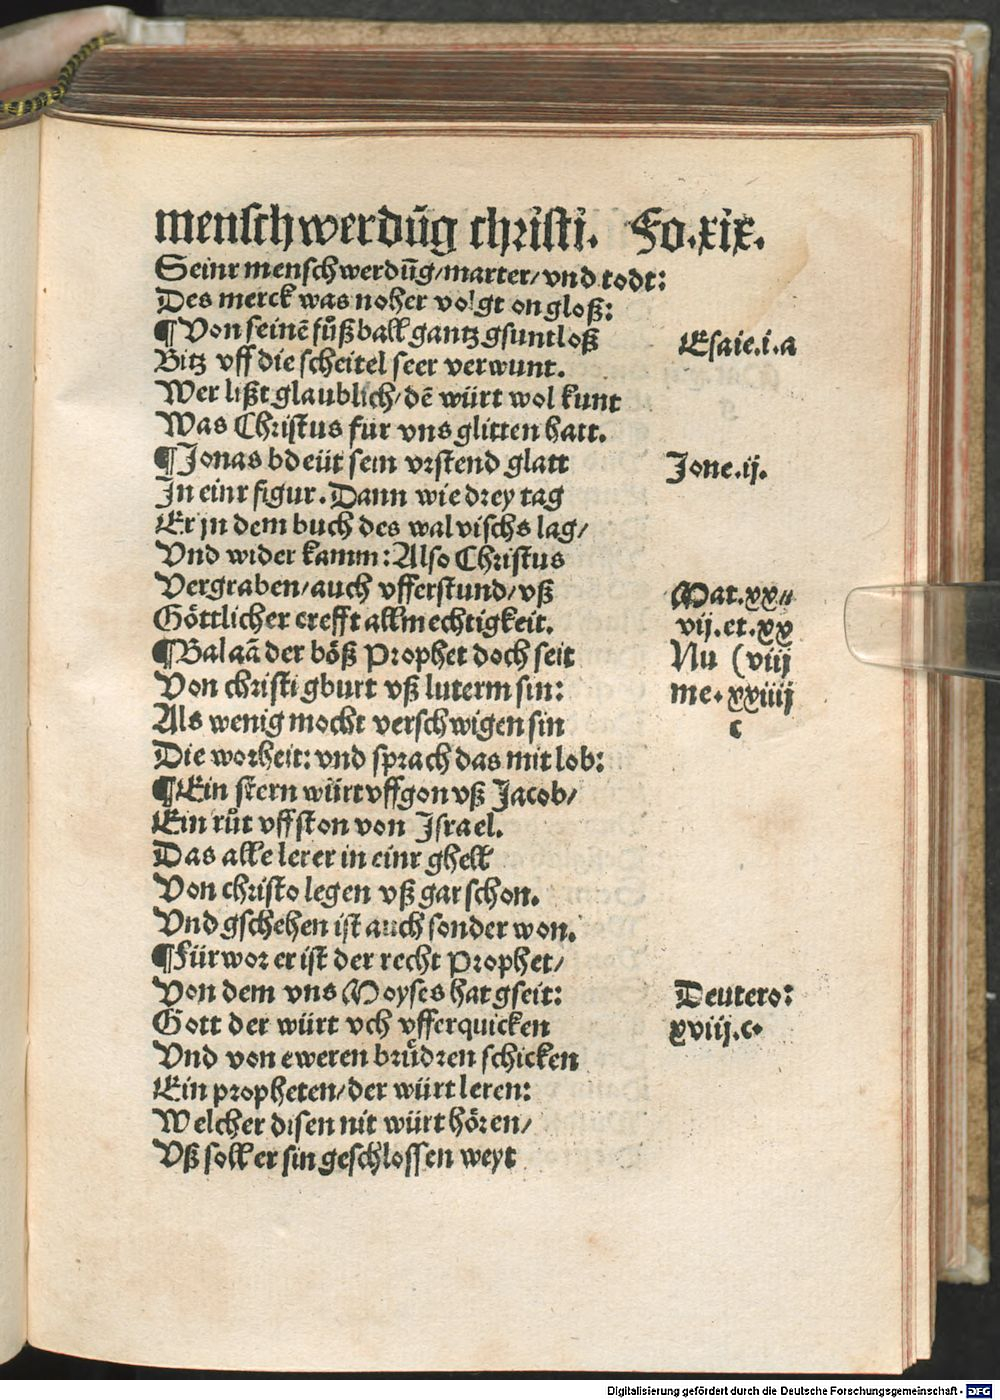 menschwerdūg christi. Fo.xix.
Seinr menschwerdūg/marter/vnd todt:
Des merck was noher volgt on gloß:
¶Von seinē fůßball gantz gsuntloß
Esaie.i.a
Bitz vff die scheitel seer verwunt.
Wer lißt glaublich/dē würt wol kunt
Was Christus für vns glitten hatt.
¶Jonas bdeüt sein vrstend glatt
Jone.ij.
In einr figur. Dann wie drey tag
Er jn dem buch des walvischs lag/
Vnd wider kamm: Also Christus
Vergraben/auch vfferstund/vß
Mat.xx
Göttlicher crefft allmechtigkeit.
vij.et.xx
¶Balaā der böß Prophet doch seit
Nu (viij
Von christi gburt vß luterm sin:
me.xxiiij
Als wenig mocht verschwigen sin
c
Die worheit: vnd sprach das mit lob:
¶Ein stern würt vffgon vß Jacob/
Ein růt vffston von Israel.
Das alle lerer in einr ghell
Von christo legen vß gar schon.
Vnd gschehen ist auch sonder won.
¶Fürwor er ist der recht Prophet/
Von dem vns Moyses hat gseit:
Deutero:
Gott der würt vch vfferquicken
xviij.c.
Vnd von eweren brüdren schicken
Ein propheten/der würt leren:
Welcher disen nit würt hören/
Vß soll er sin geschlossen weyt
Digitalisierung gefördert durch die Deutsche Forschungsgemeinschaft - DFG